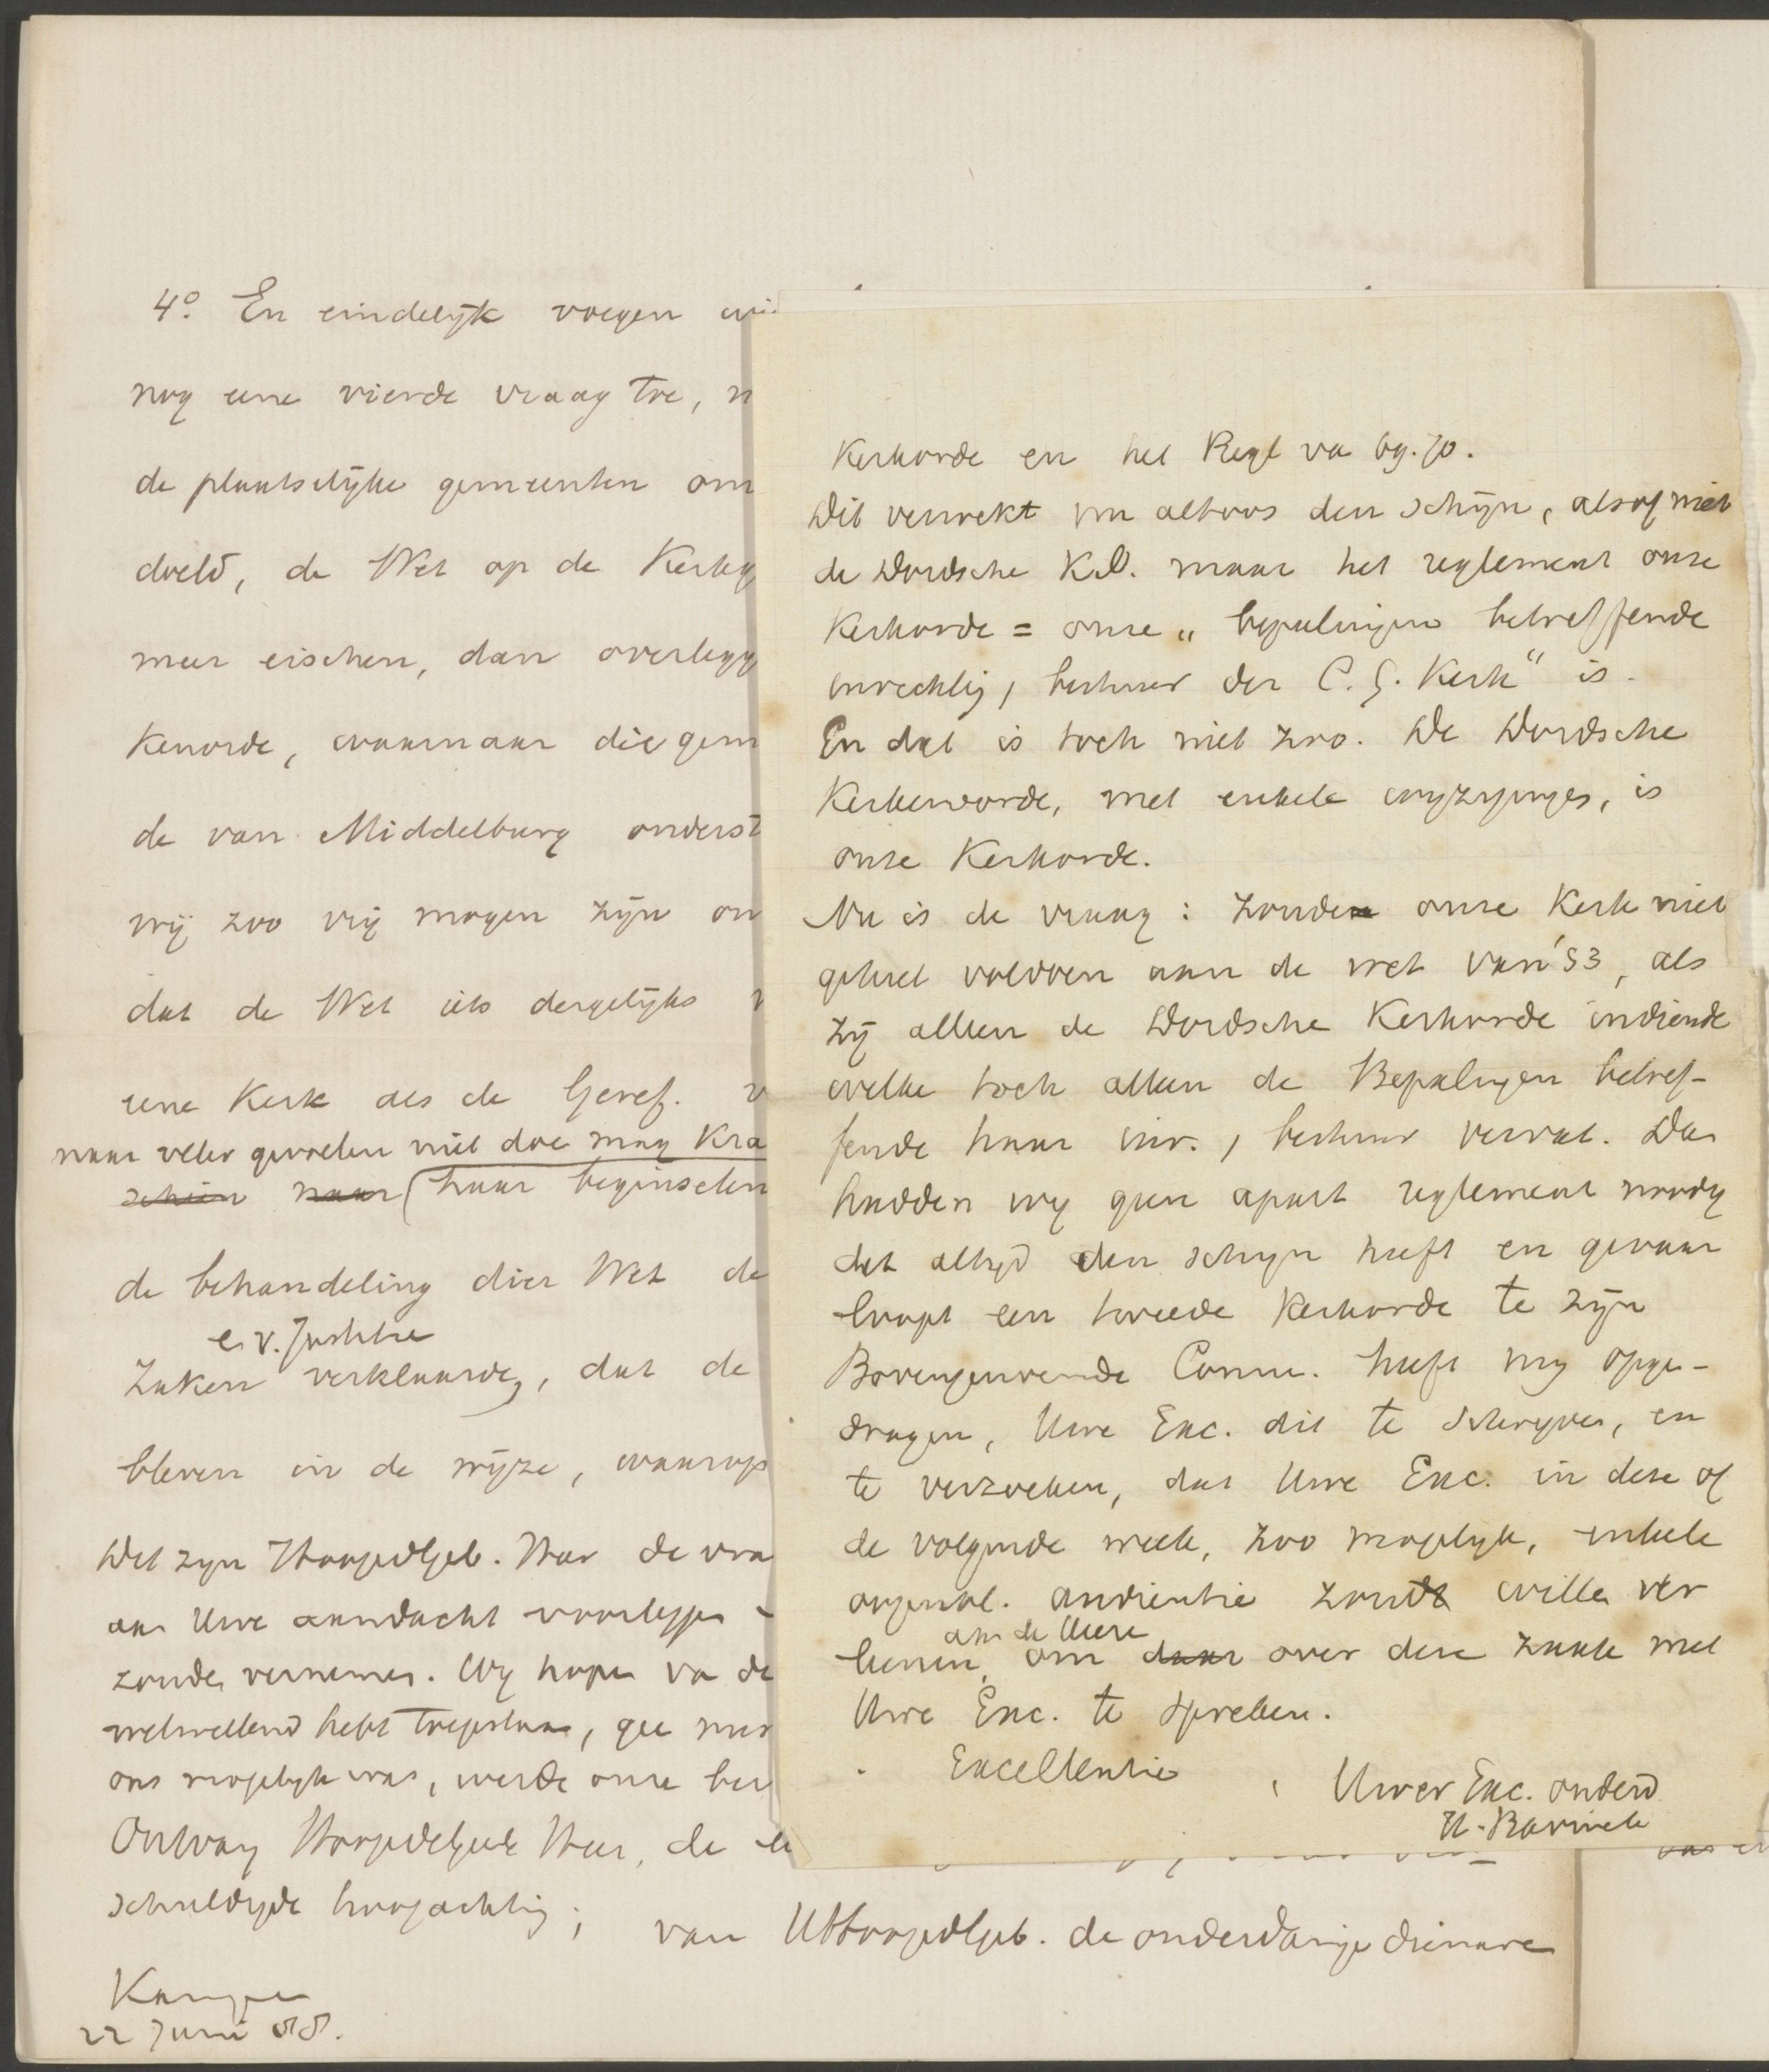 4o. En eindelijk voegen wij
nog eene vierde vraag toe, n
de plaatselijke gemeenten om
doeld, de Wet op de Kerkg
meer eischen, dan overlegg
Kenorde, waarnaar die gem
de van Middelburg onderst
wij zoo vrij mogen zijn om
dat de Wet iets dergelijks
eene Kerk als de Geref.
naar veler gevoelen niet doe mag kra
schien naar (haar beginselen
de behandeling dier Wet de
e. v. Justitie
Zaken verklaarde, dat de
bleven in de wijze, waarop
Dit zijn HoogedGeb. Heer de vra
aan Uwe aandacht voorleggen
zouden vernemen. Wij hopen va de
welwillend hebt toegestaan, gee
ons mogelijk was, werde onze
Ontvang HoogedelGeb Heer, de
schuldigde hoogachting,
van UHoogedGeb. de onderdanige dienaren
Kampen
22 Juni 88.
Kerkorde en het Regl va bg. 70.
Dit verwekt nu altoos den schijn, alsof niet
de Dordsche K.O. maar het reglement onze
Kerkorde = onze „bepalingen betreffende
inrichtig, bestuur der C. G. Kerk“ is.
En dat is toch niet zoo. De Dordsche
Kerkenorde, met enkele wijzigingen, is
onze Kerkorde.
Nu is de vraag: zouden onze Kerk niet
geheel voldoen aan de wet van '53, als
zij alleen de Dordsche Kerkorde indiende
welke toch alleen de Bepalingen betref-
fende haar inr., bestuur vervat. Dan
hadden wij geen apart reglement noodig
dat altijd den schijn heeft en gevaar
loopt een tweede Kerkorde te zijn
Bovengenoemde Comm. heeft mij opge-
dragen, Uwe Exc. dit te schrijven, en
te verzoeken, dat Uwe Exc. in deze of
de volgende week, zoo mogelijk, enkele
oogenbl. audientie zoudt willen ver
aan de Heere
leenen, om daar over deze zaak met
Uwe Exc. te spreken.
Excellentie, Uwer Exc. onderd
H. Bavinck